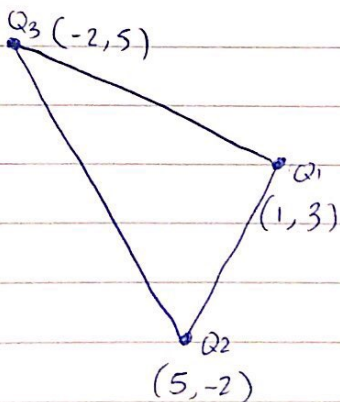 Q3 (-2,5)
Q1
(1, 3)
Q2
(5, -2)